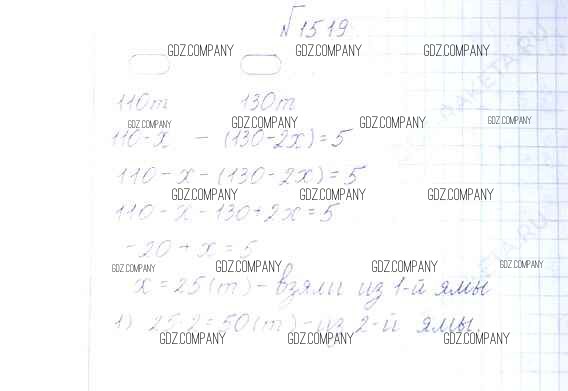 №1519
GDZ.COMPANY GDZ.COMPANY GDZ.COMPANY
110т 130т
GDZ.COMPANY GDZ.COMPANY GDZ.COMPANY GDZ.COMPANY
110-x - (130-2x)=5
110-x-(130-2x)=5
GDZ.COMPANY GDZ.COMPANY GDZ.COMPANY
110-x-130+2x=5
-20+x=5
GDZ.COMPANY GDZ.COMPANY GDZ.COMPANY GDZ.COMPANY
x=25(т)-взяли из 1-й ямы
1) 25·2=50(т)-из 2-й ямы.
GDZ.COMPANY GDZ.COMPANY GDZ.COMPANY